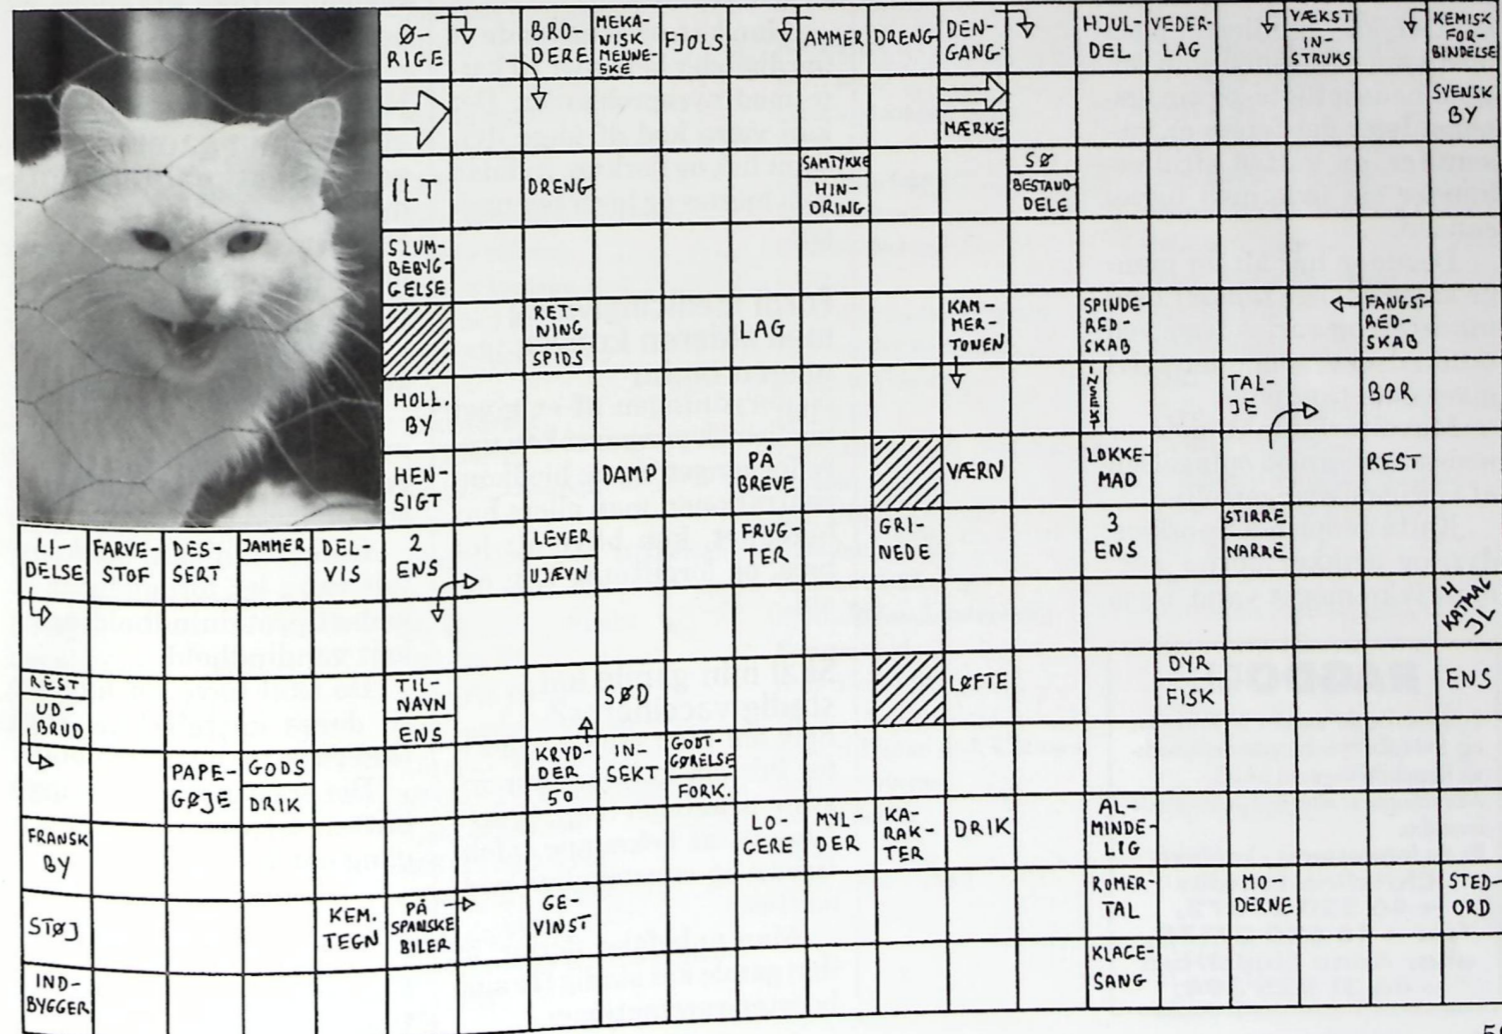 Ø-
RIGE
BRO-
DERE
MEKA-
NISK
MENNE-
SKE
FJOLS
AMMER
DRENG
DEN-
GANG
HJUL-
DEL
VEDER-
LAG
VÆKST
IN-
STRUKS
KEMISK
FOR-
BINDELSE
MÆRKE
SVENSK
BY
ILT
DRENG
SAMTYKKE
HIN-
DRING
SØ
BESTAND-
DELE
SLUM-
BEBYG-
GELSE
RET-
NING
SPIDS
LAG
KAM-
MER-
TONEN
SPINDE-
RED-
SKAB
FANGST-
RED-
SKAB
HOLL.
BY
INSEKT
TAL-
JE
BØR
HEN-
SIGT
DAMP
PÅ
BREVE
VÆRN
LOKKE-
MAD
REST
LI-
DELSE
FARVE-
STOF
DES-
SERT
JAMMER
DEL-
VIS
2
ENS
LEVER
UJÆVN
FRUG-
TER
GRI-
NEDE
3
ENS
STIRRE
NARRE
4
KATMAG
JL
REST
UD-
BRUD
TIL-
NAVN
ENS
SØD
LØFTE
DYR
FISK
ENS
PAPE-
GØJE
GODS
DRIK
KRYD-
DER
50
IN-
SEKT
GODT-
GØRELSE
FORK.
FRANSK
BY
LO-
GERE
MYL-
DER
KA-
RAK-
TER
DRIK
AL-
MINDE-
LIG
STØJ
KEM.
TEGN
PÅ
SPANSKE
BILER
GE-
VINST
ROMER-
TAL
MO-
DERNE
STED-
ORD
IND-
BYGGER
KLAGE-
SANG